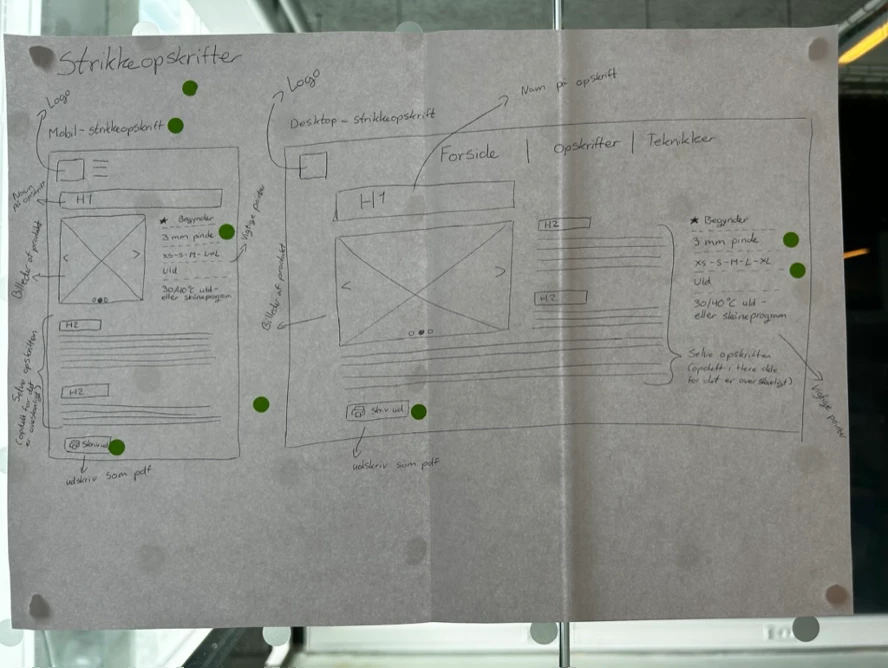 Strikkeopskrifter
Logo
Mobil - strikkeopskrift
H1
Navn på opskrift
Billede af produkt
★ Begynder
3 mm pinde
XS-S-M-L-XL
Uld
30/40°C uld-
eller skåneprogram
Vigtige punkter
H2
H2
Selve opskriften
(opdelt for det
er overskueligt)
Skriv ud
udskriv som pdf
Logo
Desktop - strikkeopskrift
Navn på opskrift
Forside | Opskrifter | Teknikker
H1
Billede af produkt
H2
H2
★ Begynder
3 mm pinde
XS-S-M-L-XL
Uld
30/40°C uld-
eller skåneprogram
Selve opskriften
(opdelt i flere dele
for det er overskueligt)
Vigtige punkter
Skriv ud
udskriv som pdf